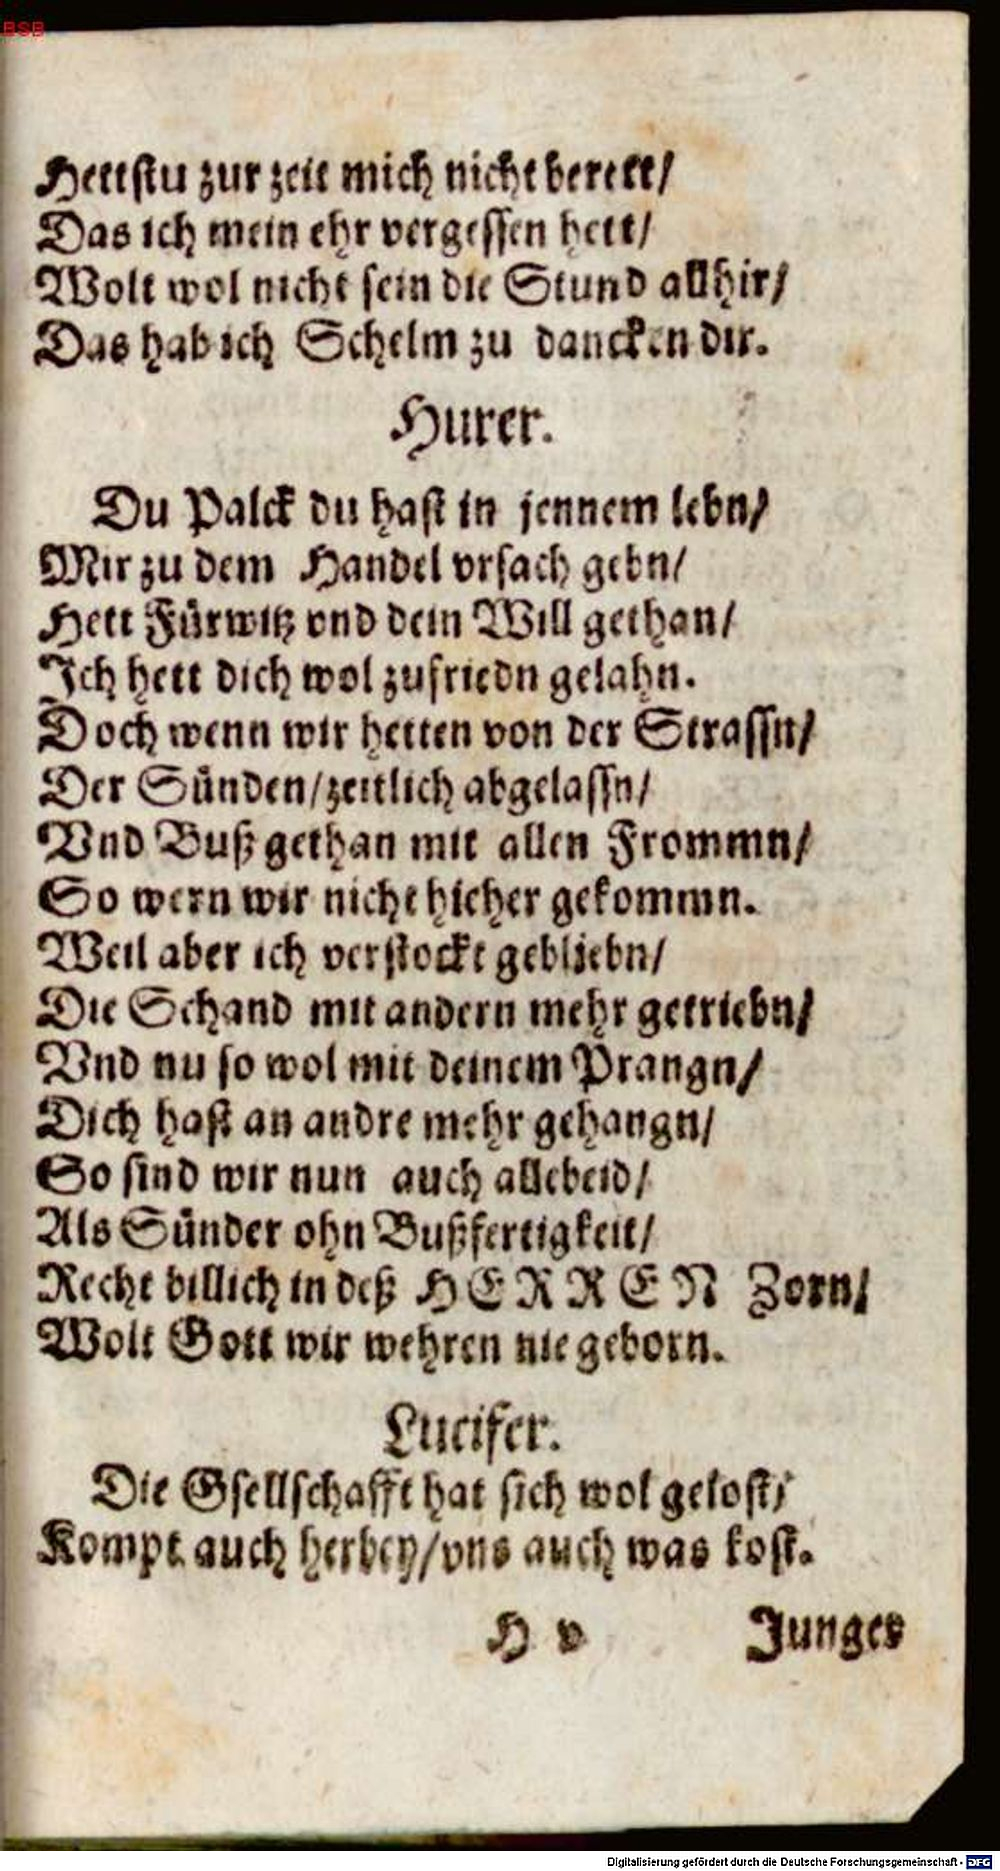 BSB
Hettstu zur zeit mich nicht berett/
Das ich mein ehr vergessen hett/
Wolt wol nicht sein die Stund allhir/
Das hab ich Schelm zu dancken dir.
Hurer.
Du Palck du hast in jennem lebn/
Mir zu dem Handel vrsach gebn/
Hett Fürwitz vnd dein Will gethan/
Ich hett dich wol zufriedn gelahn.
Doch wenn wir hetten von der Strassn/
Der Sünden/zeitlich abgelassn/
Vnd Buß gethan mit allen Frommn/
So wern wir nicht hieher gekommn.
Weil aber ich verstockt gebliebn/
Die Schand mit andern mehr getriebn/
Vnd nu so wol mit deinem Prangn/
Dich hast an andre mehr gehangn/
So sind wir nun auch allebeid/
Als Sünder ohn Bußfertigkeit/
Recht billich in deß HERREN Zorn/
Wolt Gott wir wehren nie geborn.
Lucifer.
Die Gsellschafft hat sich wol gelost/
Kompt auch herbey/vns auch was kost.
H v Junges
Digitalisierung gefördert durch die Deutsche Forschungsgemeinschaft - DFG